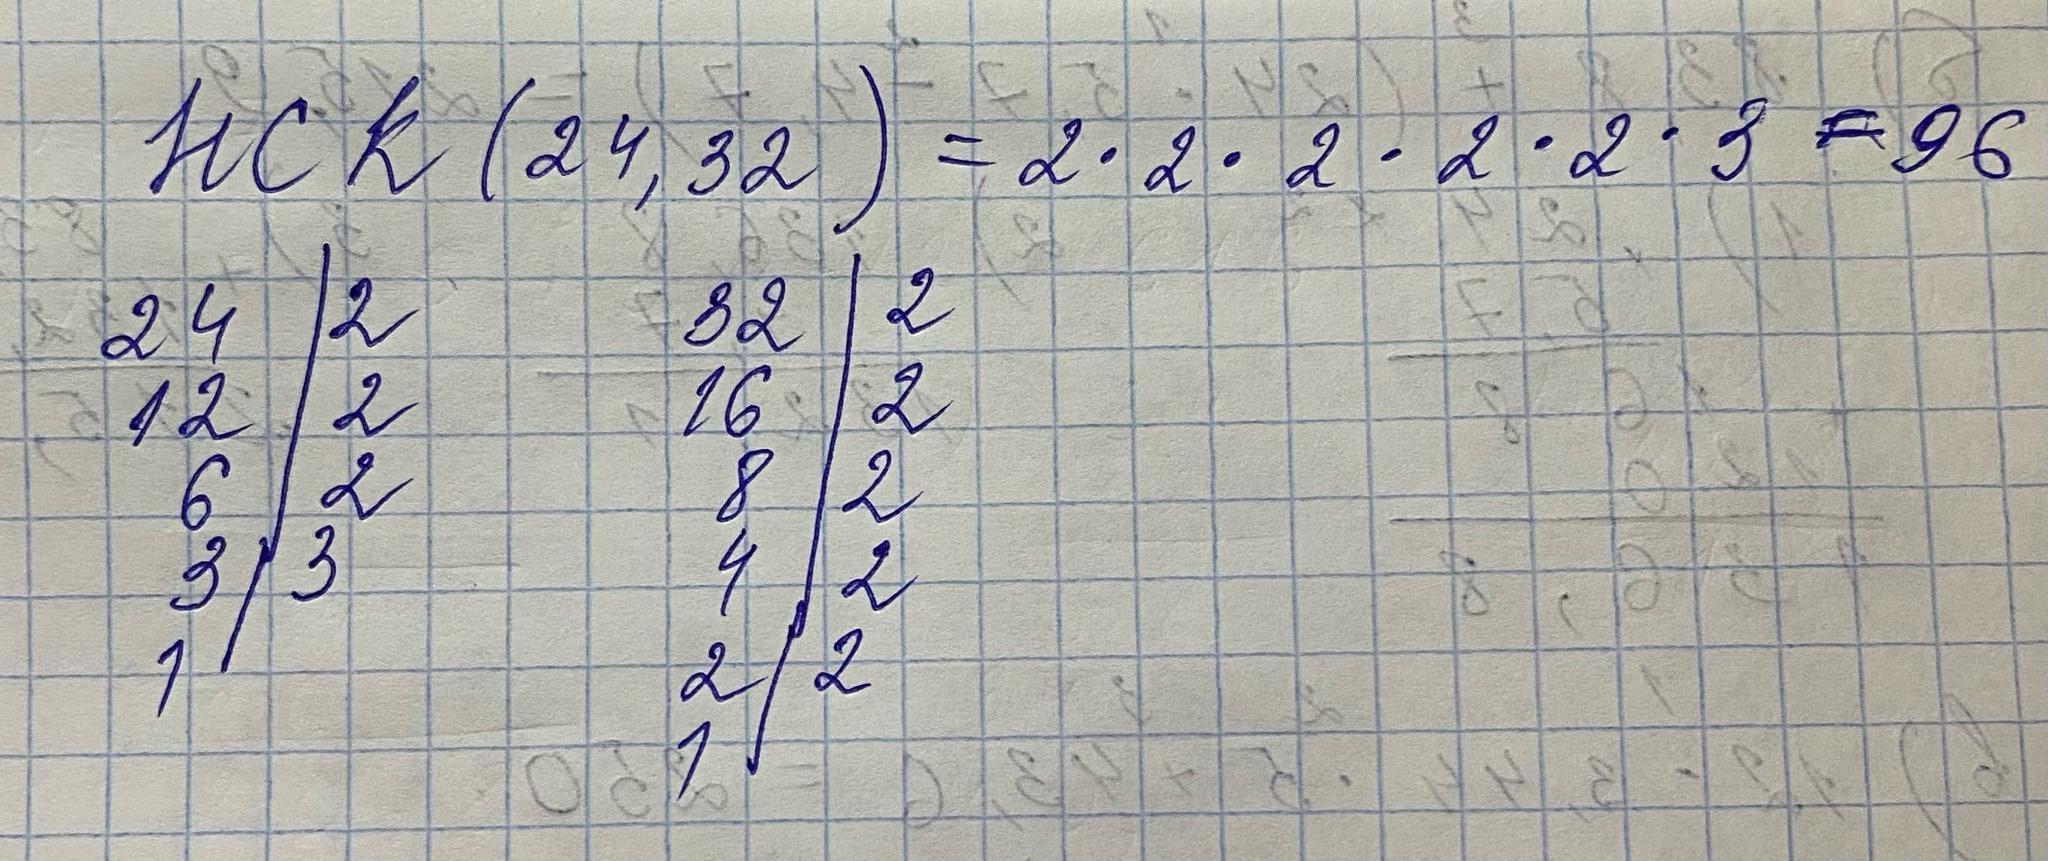 НСК (24, 32) = 2 · 2 · 2 · 2 · 2 · 3 = 96
24 | 2 32 | 2
12 | 2 16 | 2
6 | 2 8 | 2
3 | 3 4 | 2
1 2 | 2
1